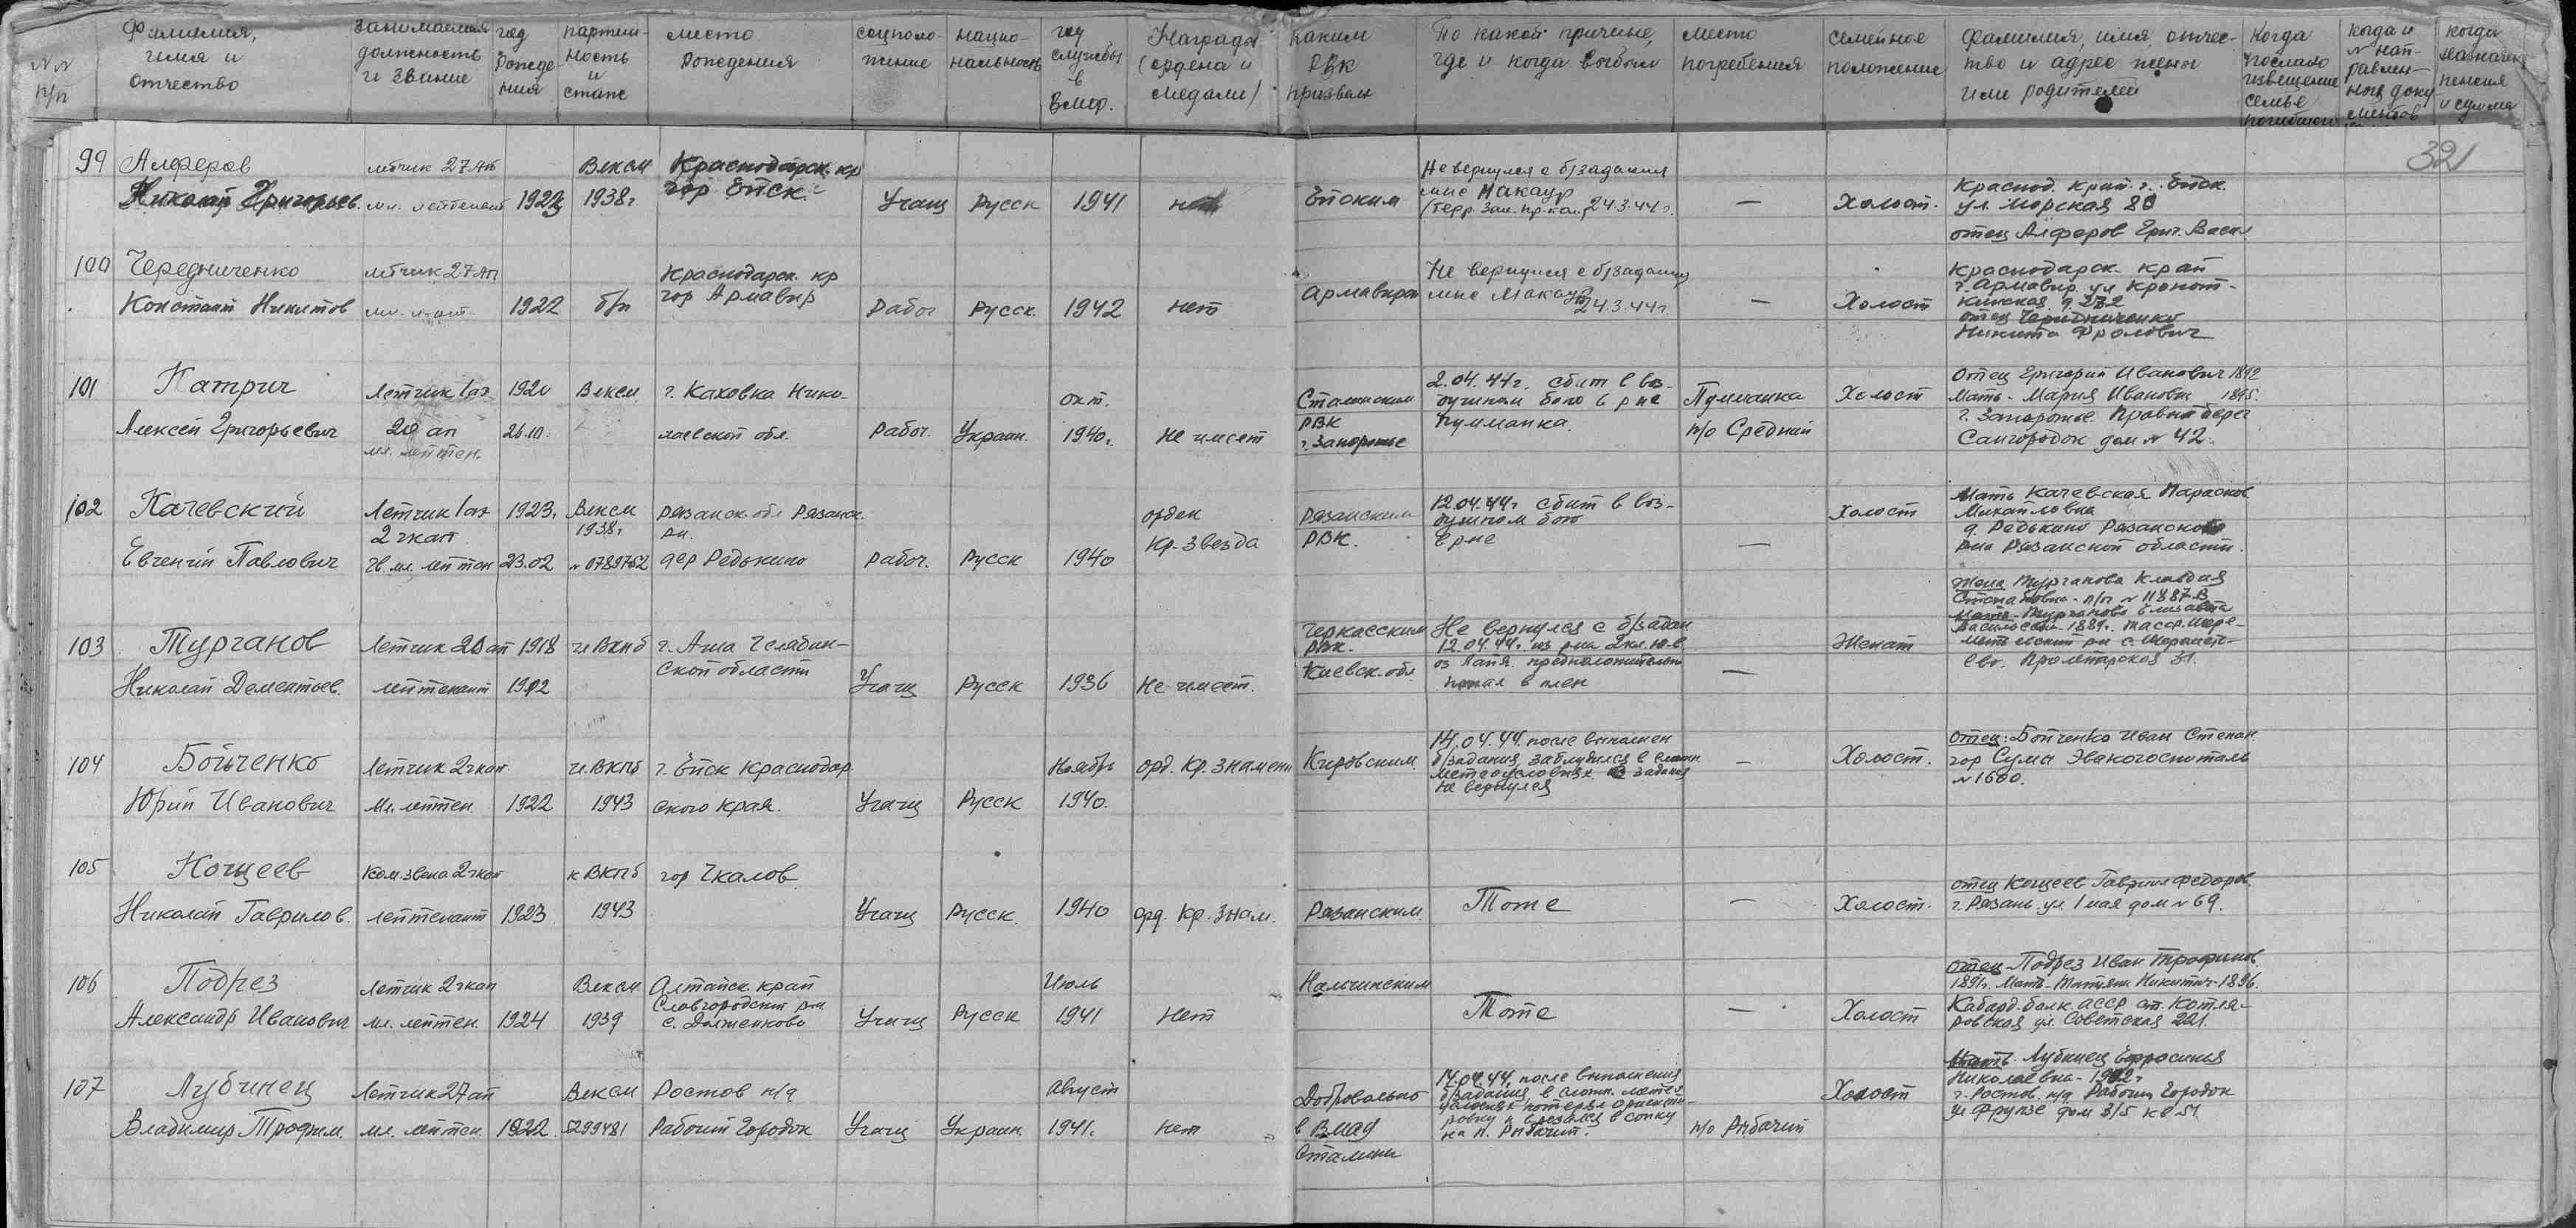 №№ п/п
Фамилия, имя и отчество
Занимаемая должность и звание
год рождения
партийность и стаж
место рождения
соцположение
национальность
год службы в ВМФ.
Награды (ордена и медали)
Каким РВК призван
По какой причине, где и когда выбыл
место погребения
семейное положение
Фамилия, имя, отчество и адрес жены или родителей
Когда послано извещение семье погибшего
когда и № направления документов
когда назначена пенсия и сумма
321
99
Алферов
Николай Григорьев.
летчик 27 АП
мл. лейтенант
1922
ВЛКСМ
1938г
Краснодарск. кр
гор Ейск
Учащ
Русск
1941
нет
Ейским
Не вернулся с б/задания
мыс Маkаур
24.3.44г.
—
Холост.
Краснод. край. г. Ейск.
ул. Морская 80
отец Алферов Григ. Васил
100
Чередниченко
Константи Никитов
летчик 27 АП
мл. л-ант
1922
б/п
Краснодарск. кр
гор Армавир
Рабоч
Русск.
1942
нет
Армавирск
Не вернулся с б/задания
мыс Макаур
24.3.44г.
—
Холост
Краснодарск. край
г. Армавир ул Кропот-
кинская д 272
отец Чередниченко
Никита Фролович
101
Патрич
Алексей Григорьевич
Летчик 1аэ
20 ап
мл. лейтен.
1920
26.10.
ВЛКСМ
г. Каховка Нико-
лаевской обл.
Рабоч.
Украин.
окт.
1940г.
Не имеет
Сталинским
РВК
г. Запорожье
2.04.44г. сбит в воз-
душном бою в р-не
Пумманка.
Пумманка
п/о Средний
Холост
Отец Григорий Иванович 1892
Мать - Мария Ивановна 1895.
г. Запорожье Правый берег
Сангородок дом № 42.
102
Качевский
Евгений Павлович
Летчик 1аэ
2 гкап
Гв. мл. лейтен
1923.
23.02
ВЛКСМ
1938г
№0789752
Рязанск. обл Рязанск.
рн.
дер Редькино
Рабоч.
Русск
1940
орден
Кр. Звезда
Рязанским
РВК.
12.04.44г сбит в воз-
душном бою
в рне
—
Холост
Мать Качевская Парасков
Михайловна
д. Редькино Рязанского
рна Рязанской области.
103
Турганов
Николай Дементьев.
Летчик 20 ап
лейтенант
1918
19.12
чл ВКПб
г. Аша Челябин-
ской области
Учащ
Русск
1936
Не имеет.
Черкасским
РВК.
Киевск. обл.
Не вернулся с б/задан
12.04.44г. из р-на 2км. ю-в
предположительно
попал в плен
—
Женат
Жена Турганова Клавдия
Степановна - п/п № 11887-В
Мать - Турганова Елизавета
Васильевна 1889г.
Пролетарская 31.
104
Бойченко
Юрий Иванович
Летчик 2гкап
Мл. лейтен.
1922
чл. ВКПб
1943
г. Ейск Краснодар
ского края.
Учащ
Русск
Ноябрь
1940.
орд. Кр. Знамени
Кировским
14.04.44. после выполнен
б/задания, заблудился в сложн.
Метеоусловиях. с задания
не вернулся
—
Холост.
Отец: Бойченко Иван Степан
гор Сумы Эвакогоспиталь
№ 1660.
105
Кощеев
Николай Гаврилов.
Ком. звена 2гкап
лейтенант
1923
к ВКПб
1943
гор Чкалов
Учащ
Русск.
1940
орд. Кр. Знам.
Рязанским
Тоже
—
Холост.
отец Кощеев Гаврил Федоров
г. Рязань ул. 1 мая дом № 69.
106
Подрез
Александр Иванович
Летчик 2гкап
мл. лейтен.
1924
ВЛКСМ
1939
Алтайск. край
Славгородский рн
с. Долженково
Учащ
Русск
Июль
1941
Нет
Нальчинским
Тоже
—
Холост
отец Подрез Иван Трофимов
1891г. Мать - Татьяна Никитич-1896.
Кабард. балк. АССР ст. Котля-
ровская ул. Советская 221.
107
Лубинец
Владимир Трофим.
Летчик 27 ап
мл. лейтен.
1922
ВЛКСМ
5299481
Ростов н/д
Рабочий Городок
Учащ
Украин.
Август
1941г.
Нет
Добровольно
в ВМАУ
Сталина
14.04.44, после выполнения
б/задания, в сложн. метео
условиях потерял ориенти-
ровку и врезался в сопку
на п. Рыбачий.
п/о Рыбачий
Холост
Мать Лубинец Ефросинья
Николаевна - 1902г
г. Ростов н/д Рабочий Городок
ул Фрунзе дом 3/5 кв 51.